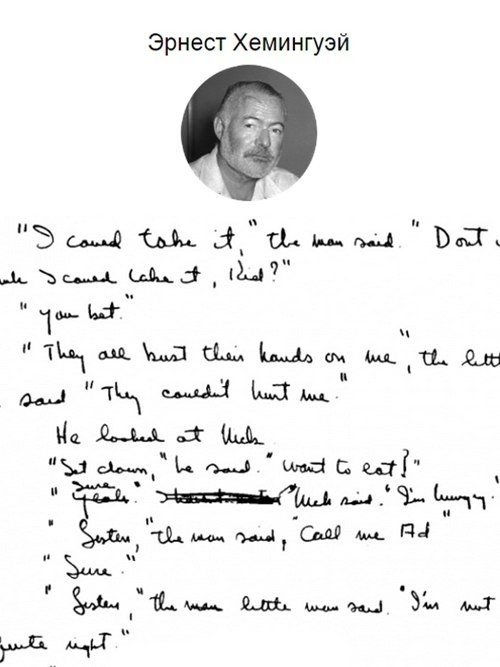 Эрнест Хемингуэй
"I could take it," the man said. "Dont
I could take it, Kid?"
"You bet."
"They all bust their hands on me", the
said "They couldn't hurt me."
He looked at Nick
"Sit down," he said. "Want to eat?"
Sure
"Yeah." "Nick said." I'm hungry."
"Listen," the man said, "Call me Ad"
"Sure."
"Listen," the man little man said. "I'm not
quite right."